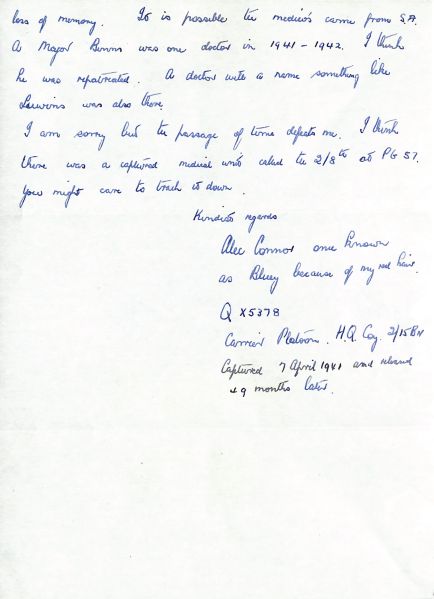 loss of memory. It is possible the medicos came from S.A.
A Major Binns was one doctor in 1941 - 1942. I think
he was repatriated. A doctor with a name something like
was also there.
I am sorry but the passage of time defeats me. I think
there was a captured medical unit called the 2/8th at PG 57.
You might care to track it down.
Kindest regards
Alec Connor once known
as Bluey because of my red hair.
QX5378
Carrier Platoon. H.Q. Coy. 2/15 BN
Captured 7 April 1941 and released
49 months later.